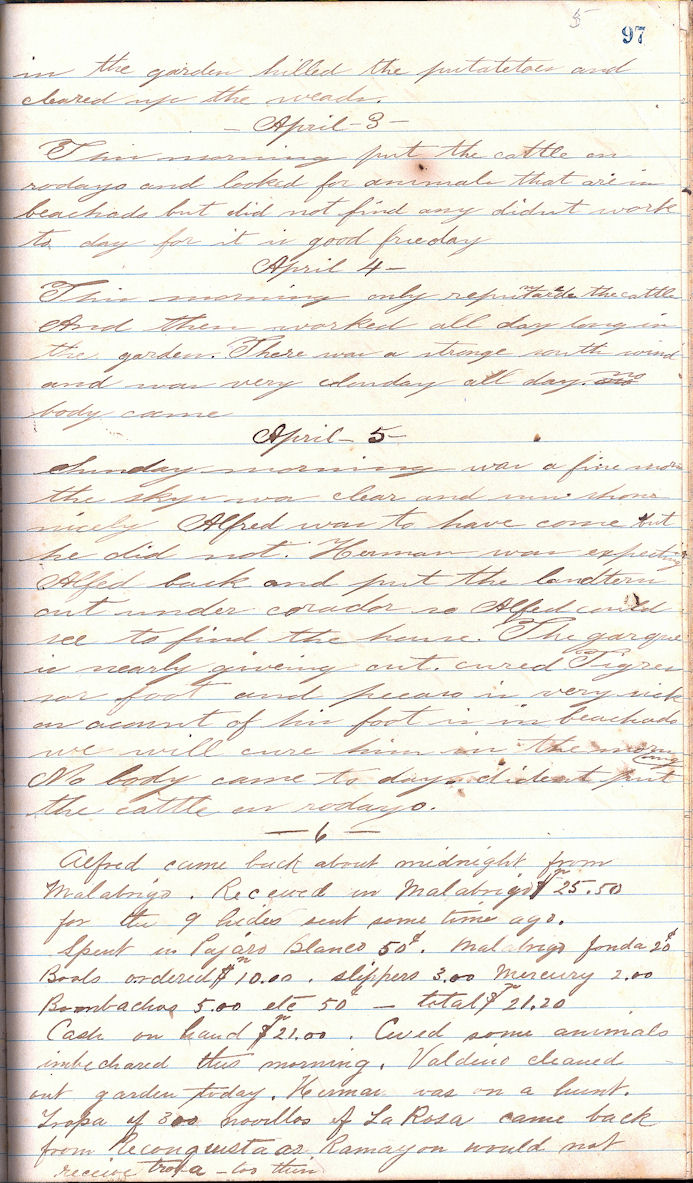 5
97
in the garden hilled the putatetoes and
cleared up the weads.
- April - 3 -
This morning put the cattle on
rodayo and looked for animals that are in
beachads but did not find any didnt work
to day for it is good frieday
April 4 -
This morning only repuntarde the cattle
And then worked all day long in
the garden. There was a stronge south wind
and was very clouday all day. no
body came
April - 5 -
Sunday morning was a fine morn
the skys was clear and sun shone
nicely Alfred was to have come but
he did not. Herman was expecting
Alfed back and put the landtern
out under corador so Alfed could
see to find the house. The garque
is nearly giveing out. cured Tigres
sor foot and pecaso is very sick
on acount of his foot is in beachado
we will cure him in the morning
No body came to day. dident put
the cattle on rodayo.
— 6 —
Alfred came back about midnight from
Malabrigo. Received in Malabrigo $ 25.50
for the 9 hides sent some time ago.
Spent in Pajaro Blanco 50¢. Malabrigo fonda 20¢
Boots ordered $ 10.00. slippers 3.00 Mercury 2.00
Bombachas 5.00 etc 50¢ — total $ 21.20
Cash on hand $ 21.00. Cured some animals
imbechared this morning. Valdino cleaned
out garden today. Herman was on a hunt.
Tropa of 300 novillos of La Rosa came back
from Reconquista as Ramayon would not
receive tropa - too thin